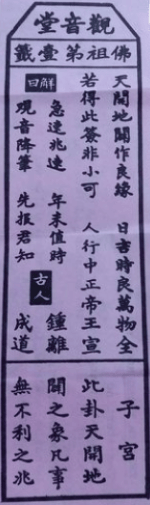 觀音堂
佛祖第壹籤
天開地闢作良緣　日吉時良萬物全
若得此簽非小可　人行中正帝王宣
解曰
急速兆速　年未值時
觀音降筆　先报君知
古人
鍾離成道
子宮
此卦天開地
闢之象凡事
無不利之兆